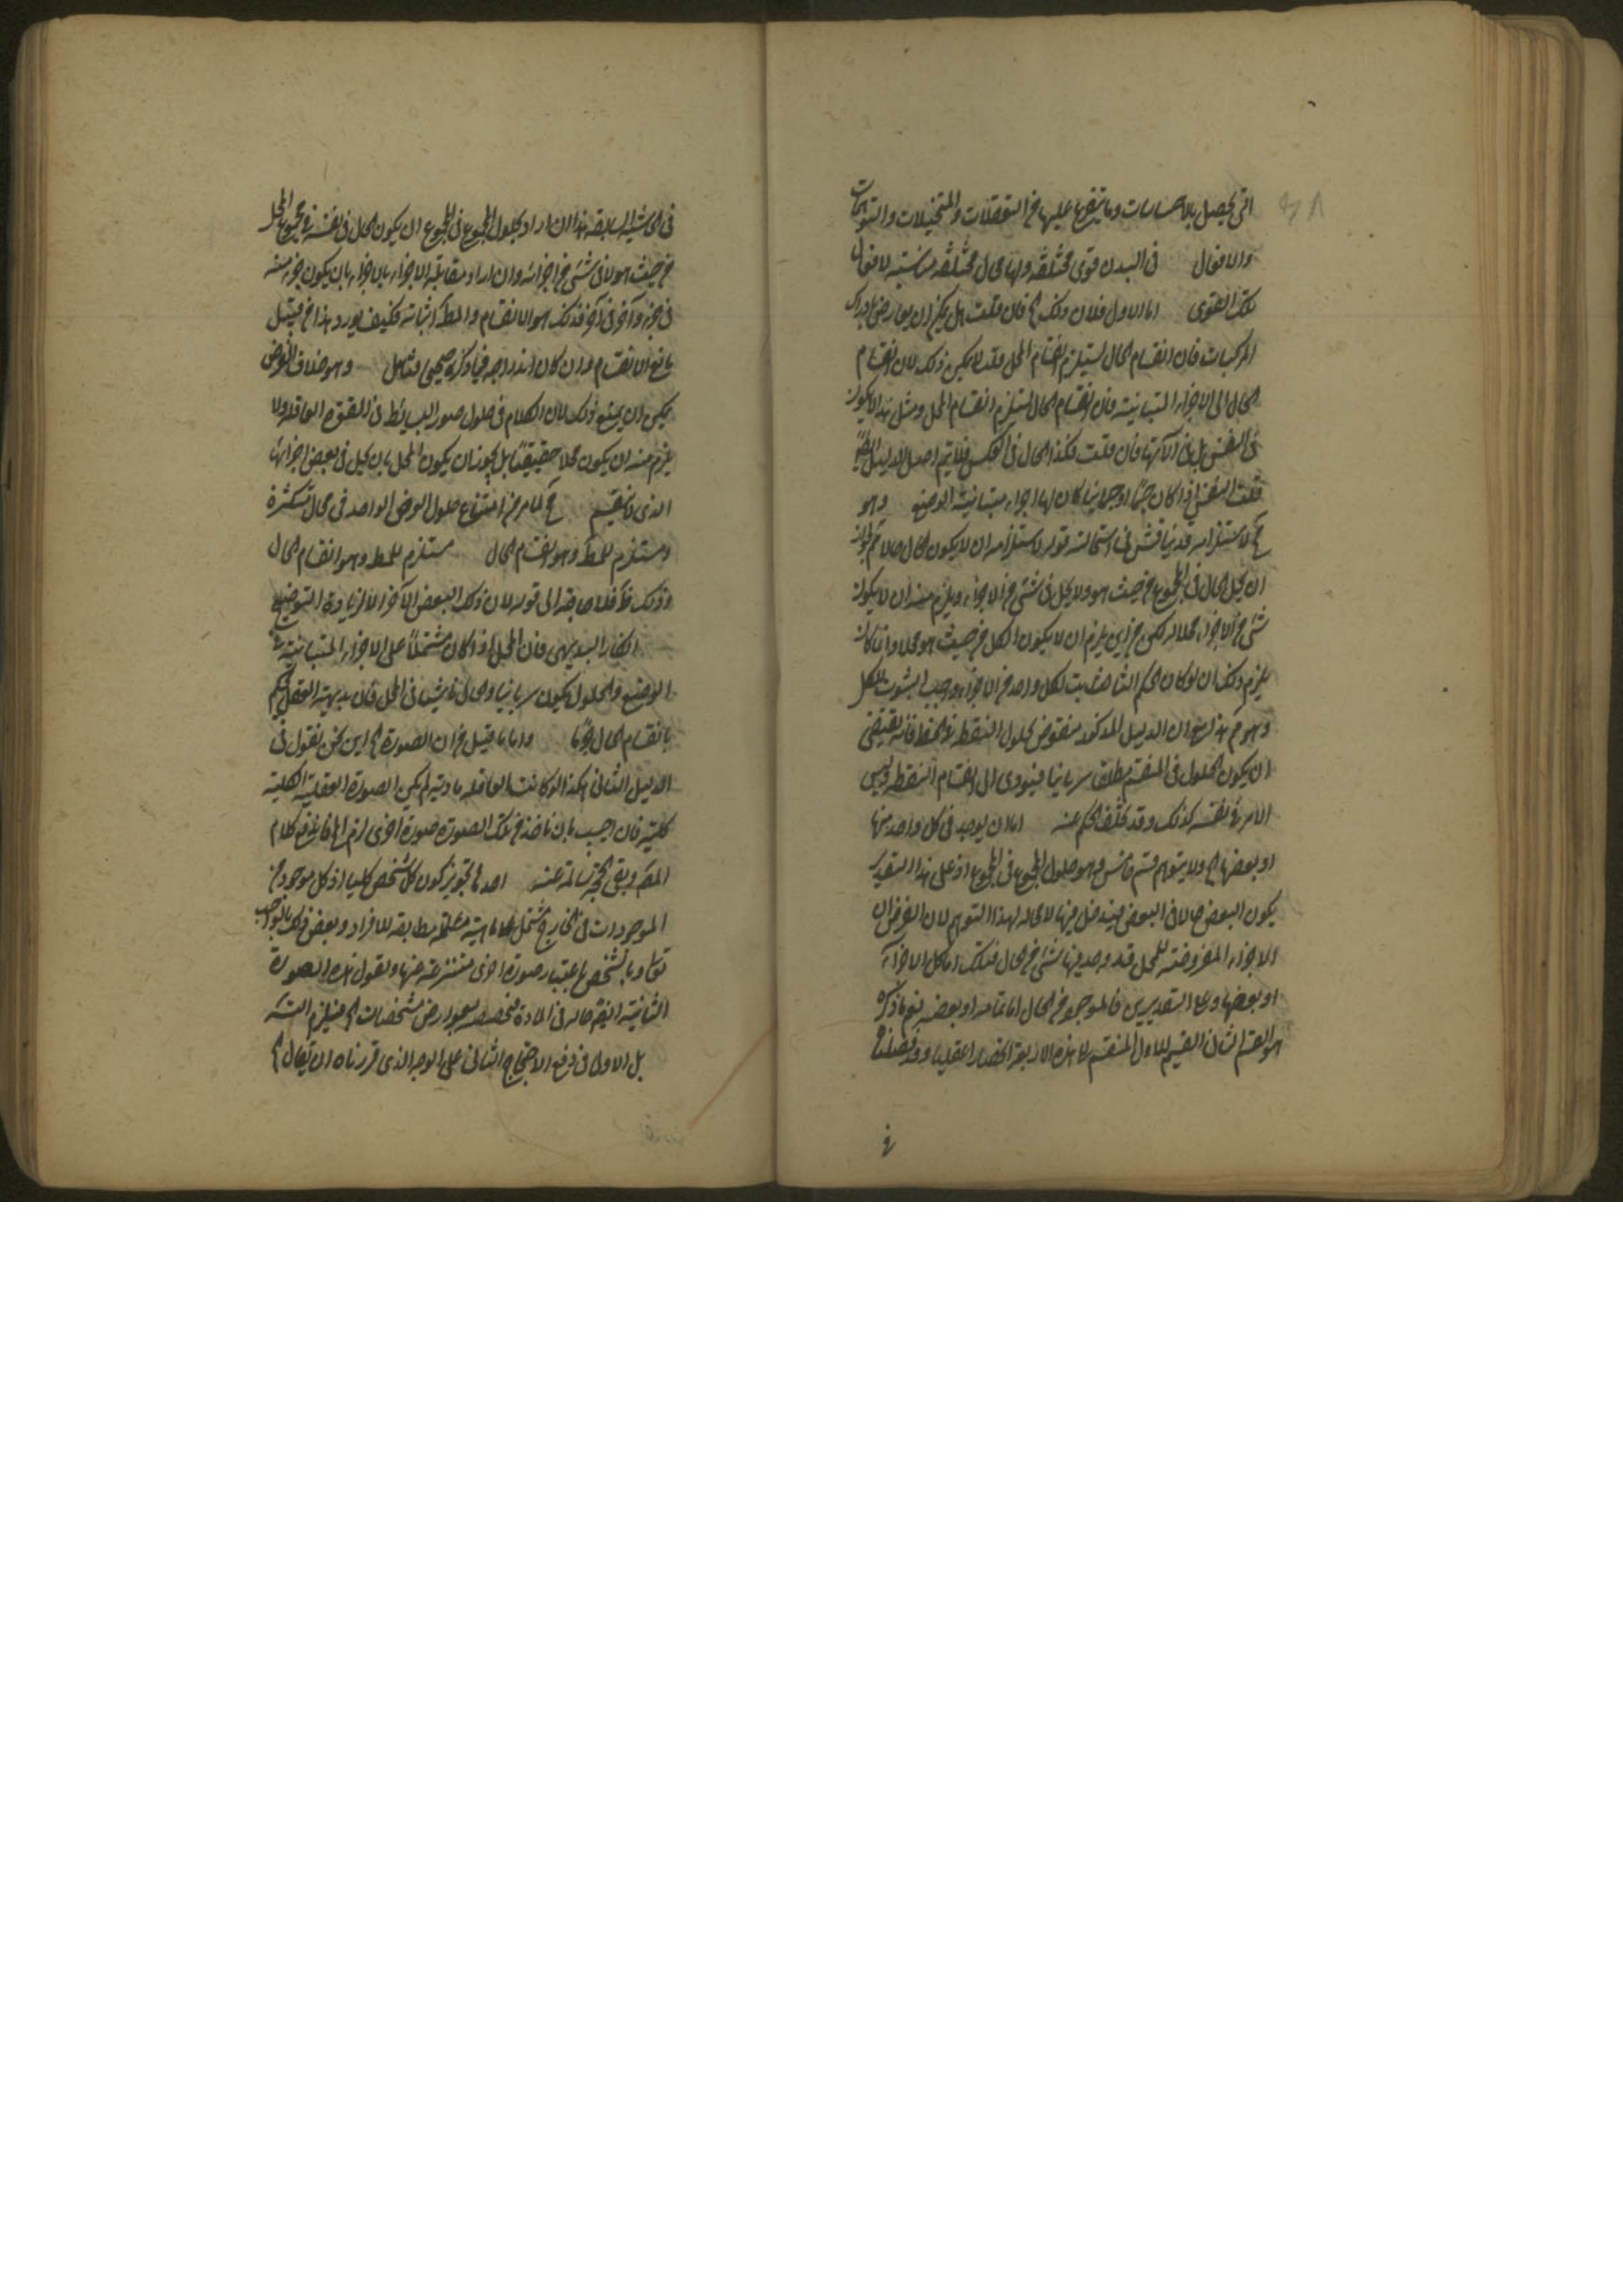 التى يحصل بالاحساسات وما يتفرع عليها من التعقلات والتخيلات والتوهمات
والافعال فى البدن قوى مختلفة ولها محال مختلفة مناسبة لافعال
تلك القوى اما الاول فلان ذلك فان قلت هل يمكن ان يعارض بادراك
المركبات فان انقسام الحال يستلزم انقسام المحل قلت لا يمكن ذلك لان انقسام
الحال الى الاجزاء المتباينة فان انقسام الحال يستلزم انقسام المحل ومثل هذا لا يكون
فى النفس بل فى آلاتها فان قلت فكذا الحال فى العكس فلا يتم اصل الدليل
قلت النفس اذا كان جسما او جسمانيا كان لها اجزاء متباينة الوضع وهو
مح لاستلزامه قد يناقش فى استحالته قوله لاستلزامه ان لا يكون الحال حالا
ان يحل الحال فى المجموع من حيث هو ولا يحل فى شئ من الاجزاء ويلزم منه ان لا يكون
شئ من الاجزاء محلا له لكن من اين يلزم ان لا يكون الكل من حيث هو محلا وانما كان
يلزم ذلك ان لو كان الحكم الثابت لكل واحد من الاجزاء واجب الثبوت للكل
وهو مم هذا مع ان الدليل المذكور منقوض بحلول النقطة فى الخط فانه يقتضى
ان يكون الحلول فى المنقسم مطلقا سريانيا فيؤدى الى انقسام النقطة وليس
الامر فى نفسه كذلك وقد تخلف الحكم عنه اما ان يوجد فى كل واحد منها
او بعضها ولا يتوهم قسم خامس وهو حلول المجموع فى المجموع اذ على هذا التقدير
يكون البعض حالا فى البعض فيدخل فيها لا محالة لهذا التوهم لان الغرض ان
الاجزاء المفروضة للمحل قد وجد فيها شئ من الحال فتلك اما كل الاجزاء
او بعضها وعلى التقديرين فالموجود من الحال اما تمامه او بعضه نعم ما ذكره
هو القسم الثانى القسيم للاول المنقسم الى هذه الاربعة انحصارا عقليا وقد فصلنا
فى الحاشية السابقة هذا ان اراد بحلول المجموع فى المجموع ان يكون الحال فى نفسه فى مجموع المحل
من حيث هو لا فى شئ من اجزائه وان اراد مقابلة الاجزاء بالاجزاء بان يكون جزء منه
فى جزء وآخر فى آخر فذلك هو الانقسام والمط اثباته فكيف يورد هذا من قبل
مانع الانقسام وان كان اندراجه فيما ذكره صحيحا فتامل وهو خلاف المفروض
يمكن ان يمنع ذلك لان الكلام فى حلول صور البسائط فى القوة العاقلة ولا
يلزم منه ان يكون محلا حقيقيا بل يجوز ان يكون المحل بان يحل فى بعض اجزائها
الذى لا ينقسم مح لما مر من امتناع حلول العرض الواحد فى محال متكثرة
ومستلزم للمط وهو انقسام الحال مستلزم للمط وهو انقسام الحال
وذلك فلا حاجة الى قوله لان ذلك البعض الآخر الا لزيادة التوضيح
انكار البديهى فان المحل اذا كان مشتملا على الاجزاء المتباينة
الوضع والحلول يكون سريانيا والحال ناشيا فى المحل فان بديهة العقل يحكم
بانقسام الحال جزما واما ما قيل من ان الصورة من اين نحن نقول فى
الدليل الثانى هكذا لو كانت العاقلة مادية لم يكن الصورة العقلية الكلية
كلية فان اجيب بان ناخذ من تلك الصورة صورة اخرى لزم كلام
المقر وبقى الحجة سالمة عنه احدها تجويز كون كل شخص كليا اذ كل موجود من
الموجودات فى الخارج مشتمل على ماهية كلية مطابقة للافراد وبعض
باعتبار صورة اخرى منتزعة عنها ونقول هذه الصورة
الثانية ايضا حالة فى المادة مخصصة بعوارض مشخصات فيلزم التسلسل
بل الاولى فى دفع الاحتجاج الثانى على الوجه الذى قررناه ان يقال